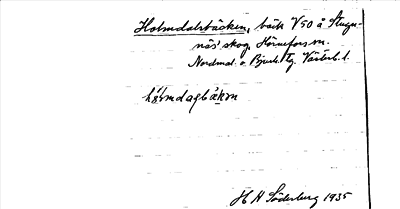 Holmdalsbäcken, bäck V50 å Stugu-
näs skog, Hörnefors sn.
Nordmal. o. Bjurh. tg. Västerb. l.
hólmdagbäkɐn
H H Söderberg 1935